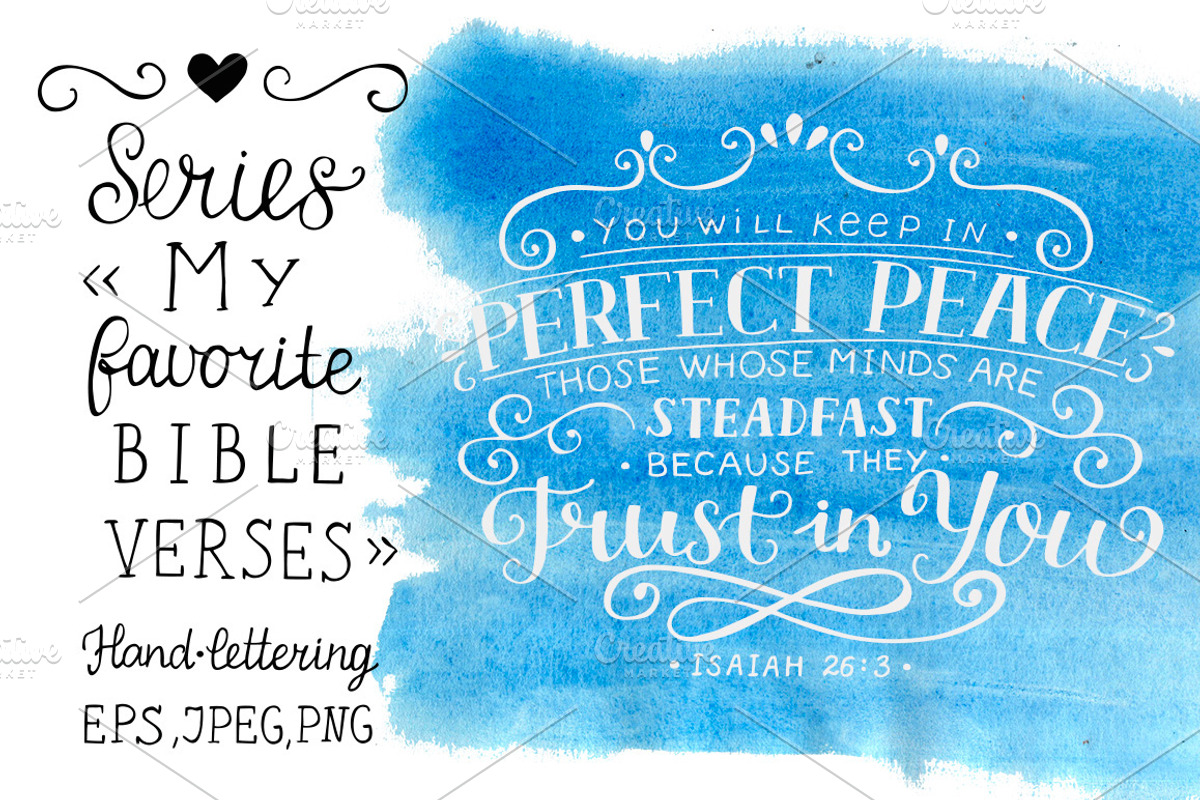 Series
« My
favorite
BIBLE
VERSES »
Hand·lettering
EPS, JPEG, PNG
• YOU WiLL KEEP IN •
PERFECT PEACE
THOSE WHOSE MINDS ARE
STEADFAST
• BECAUSE THEY •
Trust in You
• ISAIAH 26:3 •
Creative
MARKET